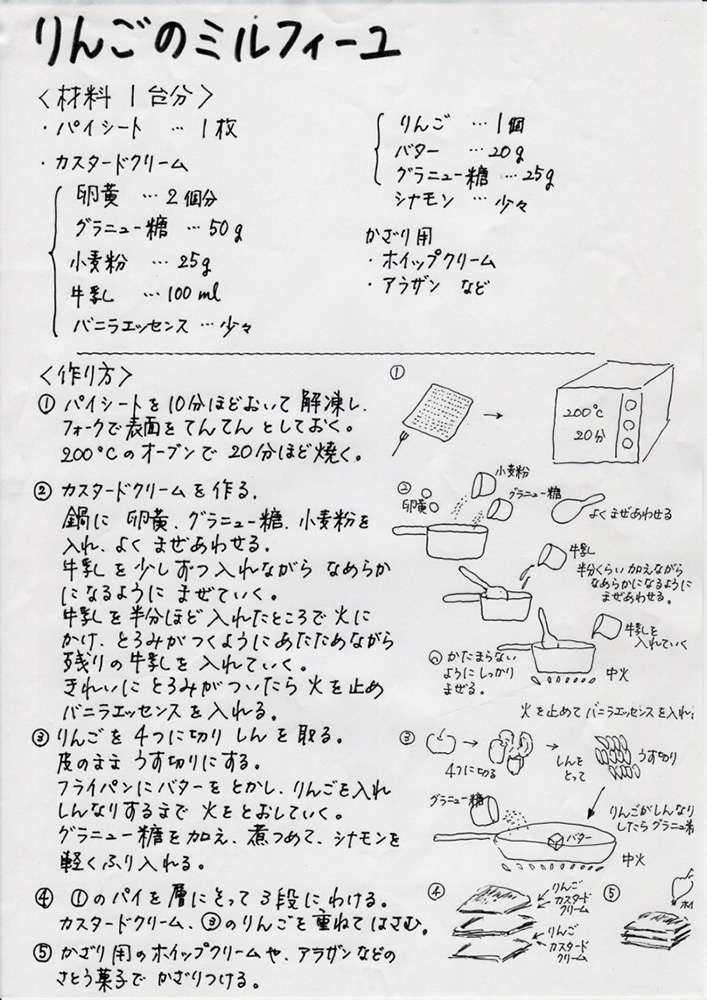 りんごのミルフィーユ
〈材料 1台分〉
・パイシート … 1枚
・カスタードクリーム
卵黄 … 2個分
グラニュー糖 … 50g
小麦粉 … 25g
牛乳 … 100ml
バニラエッセンス … 少々
りんご … 1個
バター … 20g
グラニュー糖 … 25g
シナモン … 少々
かざり用
・ホイップクリーム
・アラザン など
〈作り方〉
① パイシートを10分ほどおいて解凍し、
フォークで表面をてんてんとしておく。
200℃のオーブンで20分ほど焼く。
② カスタードクリームを作る。
鍋に卵黄、グラニュー糖、小麦粉を
入れ、よくまぜあわせる。
牛乳を少しずつ入れながらなめらか
になるようにまぜていく。
牛乳を半分ほど入れたところで火に
かけ、とろみがつくようにあたためながら
残りの牛乳を入れていく。
きれいにとろみがついたら火を止め
バニラエッセンスを入れる。
③ りんごを4つに切りしんを取る。
皮のままうす切りにする。
フライパンにバターをとかし、りんごを入れ
しんなりするまで火をとおしていく。
グラニュー糖を加え、煮つめて、シナモンを
軽くふり入れる。
④ ①のパイを層にそって3段にわける。
カスタードクリーム、③のりんごを重ねてはさむ。
⑤ かざり用のホイップクリームや、アラザンなどの
さとう菓子でかざりつける。
①
200℃
20分
②
小麦粉
グラニュー糖
卵黄
よくまぜあわせる
牛乳
半分くらい加えながら
なめらかになるように
まぜあわせる。
牛乳を
入れていく
かたまらない
ようにしっかり
まぜる。
中火
火を止めてバニラエッセンスを入れ
③
4つに切る
しんを
とって
うす切り
グラニュー糖
バター
りんごがしんなり
したらグラニュ
中火
④
りんご
カスタード
クリーム
りんご
カスタード
クリーム
⑤
ホイ